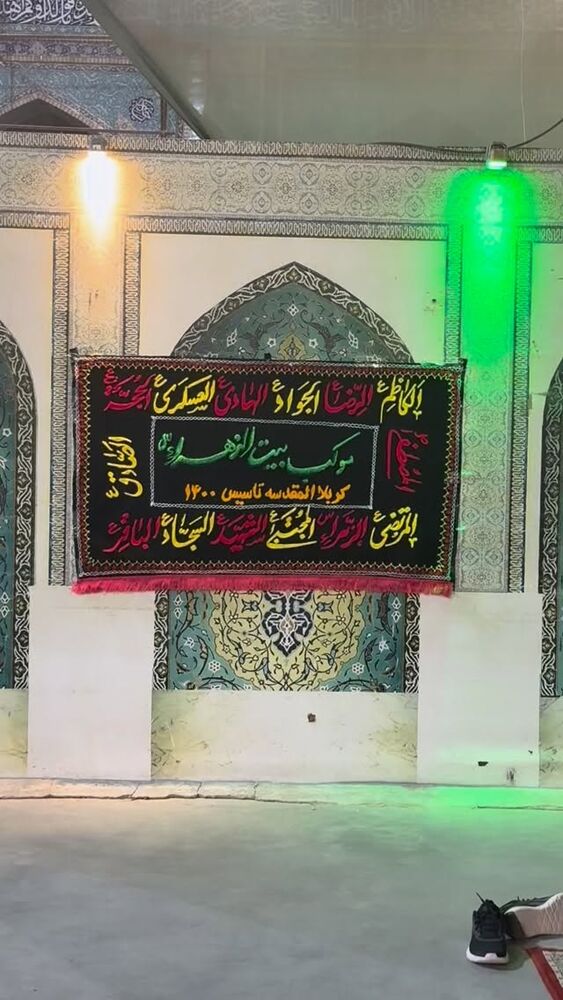 الكاظم الرضا الجواد الهادي العسكري الحجة
المصطفى
موكب بيت الزهراء
كربلا المقدسه تاسيس ۱۴۰۰
الصادق
المرتضى الزهراء المجتبى الشهيد السجاد الباقر